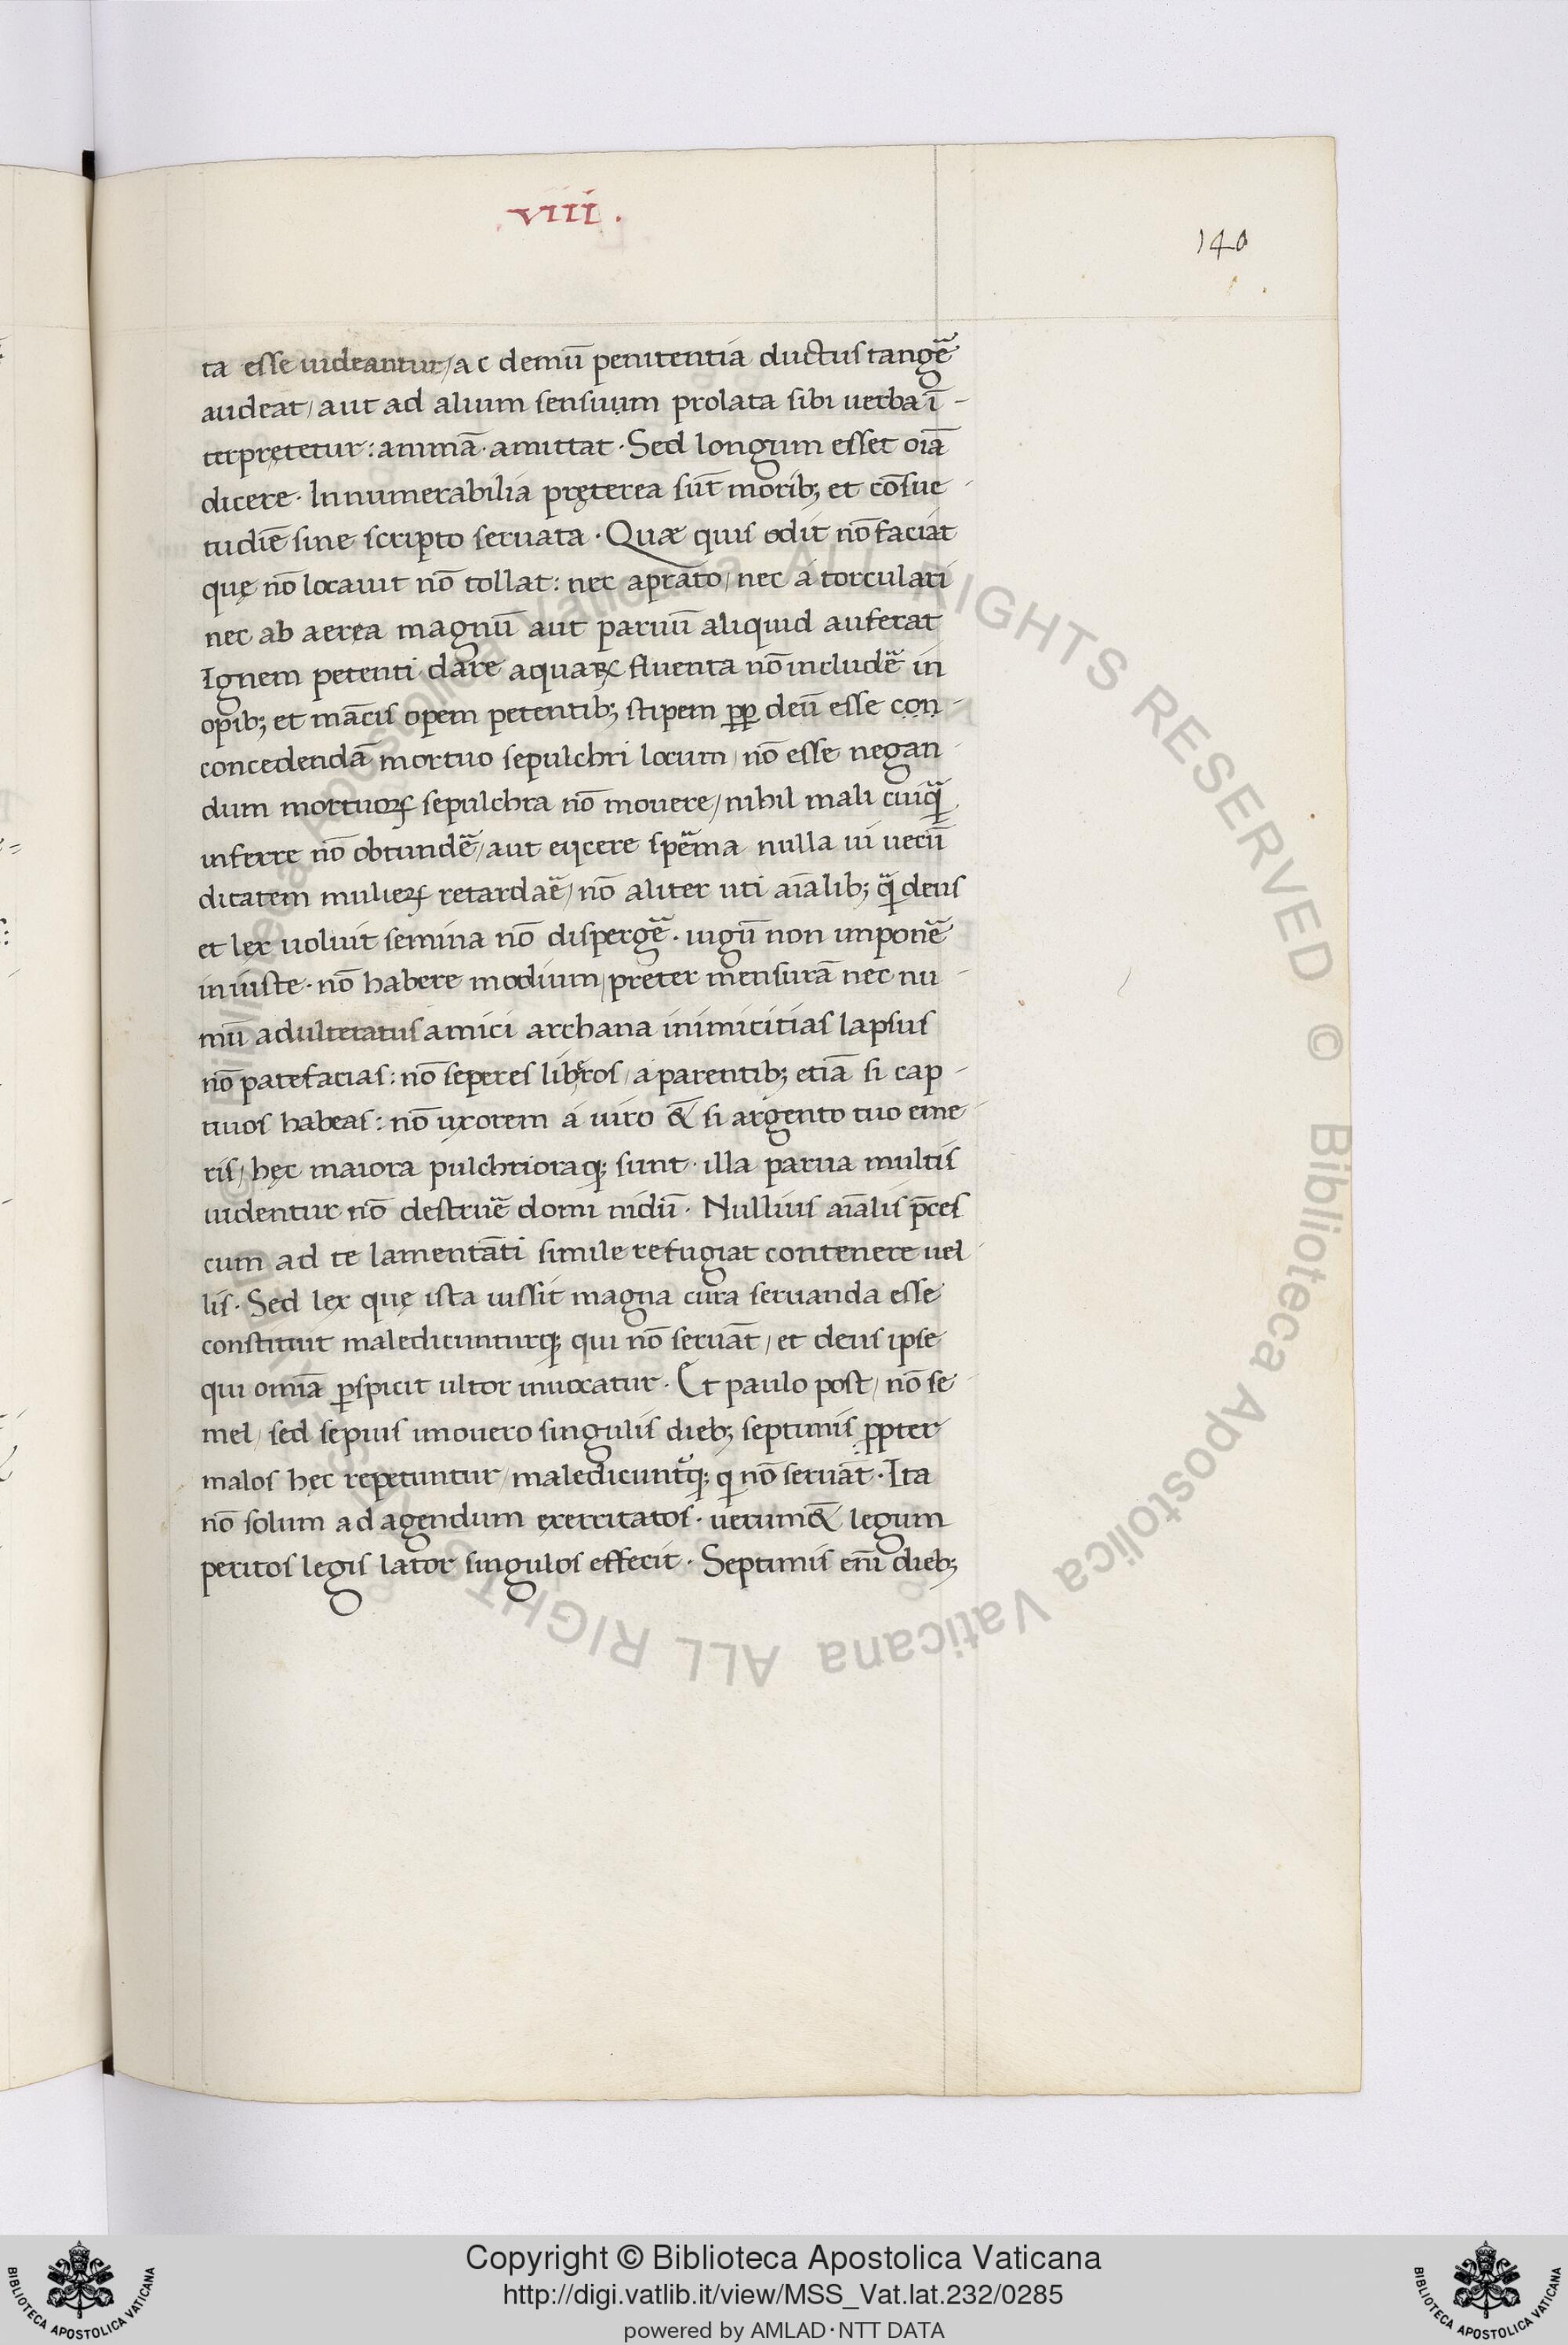 viii.
140
ta esse uideantur/ac demū penitentia ductus tangē
audeat/aut ad alium sensuum prolata sibi uerba ī-
terpretetur: animā·amittat·Sed longum esset oīa
dicere·Innumerabilia pręterea sūt morib; et cōsue-
tudīe sine scripto seruata·Quæ quis odit nō faciat
quę nō locauit nō tollat: nec a prato/nec a torculari
nec ab aerea magnū aut paruū aliquid auferat
Ignem petenti dare aquaꝝ fluenta nō includē in
opib; et mācis opem petentib; stipem ꝓp deū esse con-
concedendā mortuo sepulchri locum/nō esse negan-
dum mortuoꝝ sepulchra nō mouere/nihil mali cuiq̄
inferre nō obtundē/aut eijcere spēma nulla ui uecū
ditatem mulieꝝ retardaē/nō aliter uti aīalib; q̄ deus
et lex uoluit semina nō dispergē·iugū non imponē
iniuste·nō habere modium/preter mensurā nec nu-
mū adulteratus amici archana inimicitias lapsus
nō patefacias: nō seperes libros/a parentib; etiā si cap-
tiuos habeas: nō uxorem a uiro &̄ si argento tuo eme-
ris/hęc maiora pulchrioraq; sunt·illa parua multis
uidentur nō destruē domi nidū·Nullius aīalis p̄ces
cum ad te lamentāti simile refugiat contenere uel-
lis·Sed lex quę ista iussit magna cura seruanda esse
constituit maledicunturq; qui nō seruāt/et deus ipse
qui omīa ꝑspicit ultor inuocatur·Et paulo post/nō se-
mel/sed sepius imouero singulis dieb; septimis ꝓpter
malos hęc repetuntur/maledicuntq; q nō seruāt·Ita
nō solum ad agendum exercitatos·uerum&̄ legum
peritos legis lator singulos effecit·Septimis enī dieb;
Biblioteca Apostolica Vaticana ALL RIGHTS RESERVED © Biblioteca Apostolica Vaticana ALL RIGHTS RESERVED ©
Copyright © Biblioteca Apostolica Vaticana
http://digi.vatlib.it/view/MSS_Vat.lat.232/0285
powered by AMLAD·NTT DATA
BIBLIOTECA APOSTOLICA VATICANA
BIBLIOTECA APOSTOLICA VATICANA